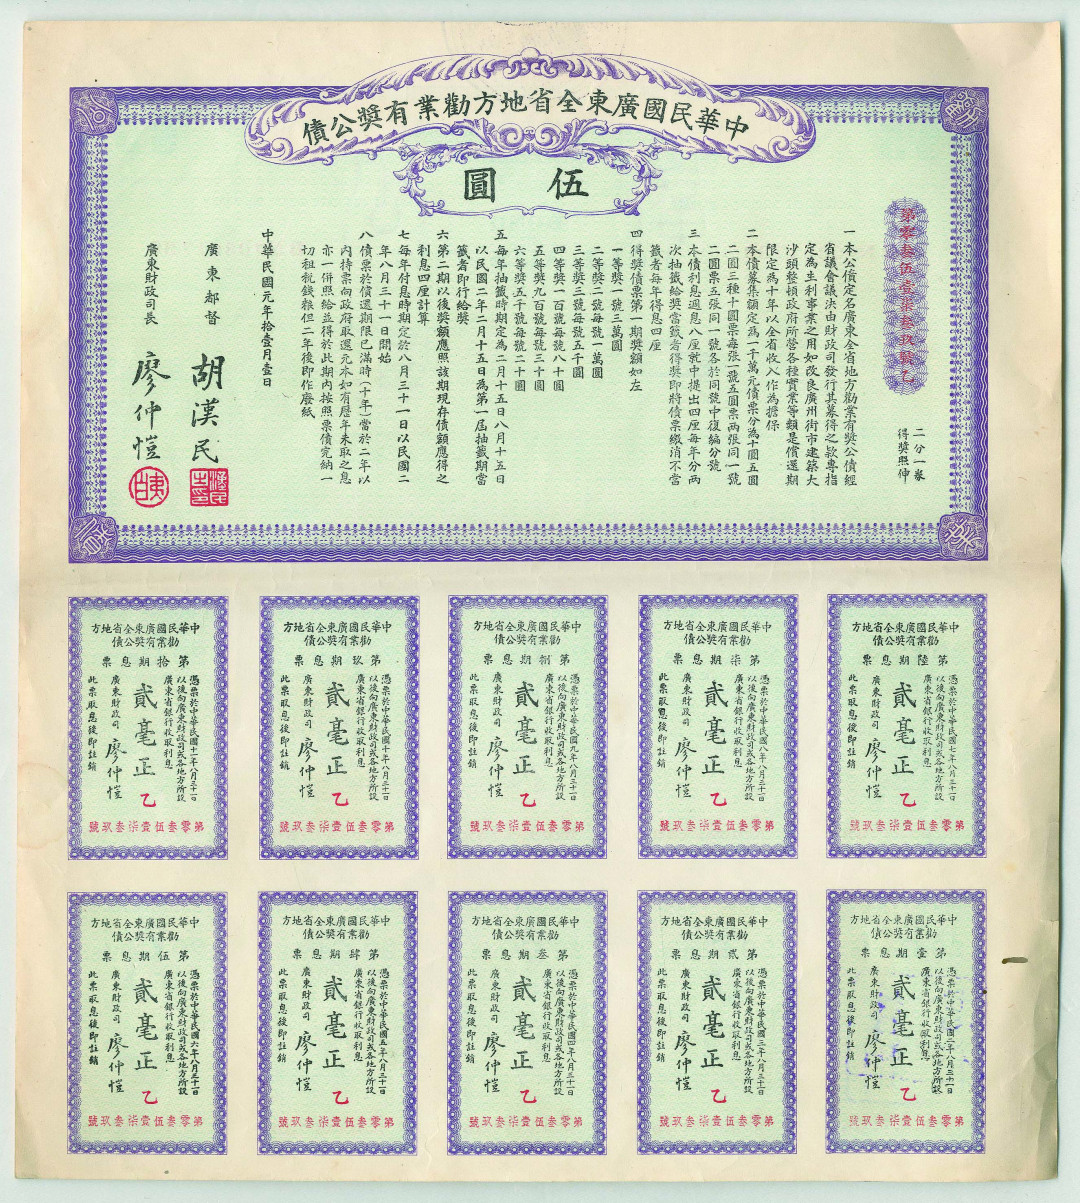 中華民國廣東全省地方勸業有獎公債
伍圓
第零叁伍壹柒叁玖號乙
二分一家
得獎照伸
一本公債定名廣東全省地方勸業有獎公債經
省議會議決由財政司發行其募得之款專指
定為生利事業之用如改良廣州街市建築大
沙頭整頓政府所營各種實業等類是償還期
限定為十年以全省收入作為擔保
二本債募集額定為一千萬元債票分為十圓五圓
二圓三種十圓票每張一號五圓票兩張同一號
二圓票五張同一號各於同號中復編分號
三本債利息週息八厘就中提出四厘每年分兩
次抽籤給獎當籤者得獎即將債票繳消不當
籤者每年得息四厘
四得獎債票第一期獎額如左
一等獎一號三萬圓
二等獎二號每號一萬圓
三等獎三號每號五千圓
四等獎一百號每號八十圓
五等獎九百號每號三十圓
六等獎五千號每號二十圓
五每年抽籤時期定為二月十五日八月十五日
以民國二年二月十五日為第一屆抽籤期當
籤者即行給獎
六第二期以後獎額應照該期現存債額應得之
利息四厘計算
七每年付息時期定於八月三十一日以民國二
年八月三十一日開始
八債票於償還期限已滿時（十年）當於二年以
內持票向政府取還元本如有歷年未取之息
亦一併照給並得於此期內按照票債完納一
切租稅錢糧但二年後即作廢紙
中華民國元年拾壹月壹日
廣東都督 胡漢民
廣東財政司長 廖仲愷
中華民國廣東全省地方
勸業有獎公債
第陸期息票
憑票於中華民國七年八月三十一日
以後向廣東財政司或各地方所設
廣東省銀行收取利息
貳毫正 乙
廣東財政司 廖仲愷
此票取息後即註銷
第零叁伍壹柒叁玖號
中華民國廣東全省地方
勸業有獎公債
第柒期息票
憑票於中華民國八年八月三十一日
以後向廣東財政司或各地方所設
廣東省銀行收取利息
貳毫正 乙
廣東財政司 廖仲愷
此票取息後即註銷
第零叁伍壹柒叁玖號
中華民國廣東全省地方
勸業有獎公債
第捌期息票
憑票於中華民國九年八月三十一日
以後向廣東財政司或各地方所設
廣東省銀行收取利息
貳毫正 乙
廣東財政司 廖仲愷
此票取息後即註銷
第零叁伍壹柒叁玖號
中華民國廣東全省地方
勸業有獎公債
第玖期息票
憑票於中華民國十年八月三十一日
以後向廣東財政司或各地方所設
廣東省銀行收取利息
貳毫正 乙
廣東財政司 廖仲愷
此票取息後即註銷
第零叁伍壹柒叁玖號
中華民國廣東全省地方
勸業有獎公債
第拾期息票
憑票於中華民國十一年八月三十一日
以後向廣東財政司或各地方所設
廣東省銀行收取利息
貳毫正 乙
廣東財政司 廖仲愷
此票取息後即註銷
第零叁伍壹柒叁玖號
中華民國廣東全省地方
勸業有獎公債
第壹期息票
憑票於中華民國二年八月三十一日
以後向廣東財政司或各地方所設
廣東省銀行收取利息
貳毫正 乙
廣東財政司 廖仲愷
此票取息後即註銷
第零叁伍壹柒叁玖號
中華民國廣東全省地方
勸業有獎公債
第貳期息票
憑票於中華民國三年八月三十一日
以後向廣東財政司或各地方所設
廣東省銀行收取利息
貳毫正 乙
廣東財政司 廖仲愷
此票取息後即註銷
第零叁伍壹柒叁玖號
中華民國廣東全省地方
勸業有獎公債
第叁期息票
憑票於中華民國四年八月三十一日
以後向廣東財政司或各地方所設
廣東省銀行收取利息
貳毫正 乙
廣東財政司 廖仲愷
此票取息後即註銷
第零叁伍壹柒叁玖號
中華民國廣東全省地方
勸業有獎公債
第肆期息票
憑票於中華民國五年八月三十一日
以後向廣東財政司或各地方所設
廣東省銀行收取利息
貳毫正 乙
廣東財政司 廖仲愷
此票取息後即註銷
第零叁伍壹柒叁玖號
中華民國廣東全省地方
勸業有獎公債
第伍期息票
憑票於中華民國六年八月三十一日
以後向廣東財政司或各地方所設
廣東省銀行收取利息
貳毫正 乙
廣東財政司 廖仲愷
此票取息後即註銷
第零叁伍壹柒叁玖號